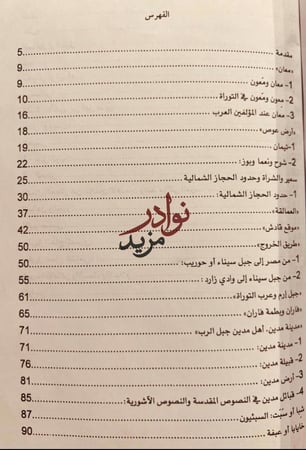 الفهرس
مقدمة 5
«معان» 9
1- معان ومَعُون 9
2- معون ومَعُون في التوراة 10
3- معان عند المؤلفين العرب 16
«أرض عوص» 18
1-تيمان 19
2- شوح ونعما وبوز: 22
سعير والشراة وحدود الحجاز الشمالية 25
1- حدود الحجاز الشمالية: 30
«العمالقة» 37
«موقع قادش» 42
«طريق الخروج» 50
1- من مصر إلى جبل سيناء أو حوريب: 50
2- من جبل سيناء إلى وادي زارد: 55
«جبل إرم وعرب التوراة» 61
«فاران وبطمة فاران» 65
«مدينة مدين- أهل مدين جبل الرب» 71
1- مدينة مدين: 71
2- قبيلة مدين: 76
3- أرض مدين: 81
4- قبائل مدين في النصوص المقدسة والنصوص الآشورية: 85
شبا أو سبَت: السبئيون 87
خيابا أو عيفة 90
نوادر
مزيد